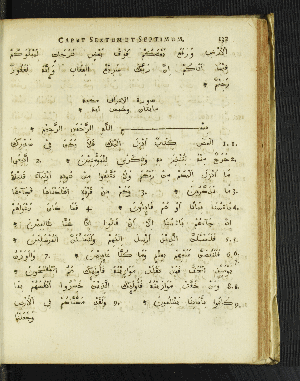 CAPUT SEXTUM ET SEPTIMUM. 132
الأرض ورفع بعضكم فوق بعض درجات ليبلوكم
فيما آتاكم إن ربك سريع العقاب وإنه لغفور
رحيم *
سورة الاعراف مكية
مايتان وخمس اية *
بسم الله الرحمن الرحيم *
1. 2. المص كتاب أنزل إليك فلا يكن في صدرك
حرج منه لتنذر به وذكرى للمؤمنين * 2 اتبعوا
ما أنزل إليكم من ربكم ولا تتبعوا من دونه أولياء قليلا
ما تذكرون * 3 وكم من قرية أهلكناها فجاءها
بأسنا بياتا أو هم قائلون * 4 فما كان دعواهم
إذ جاءهم بأسنا إلا أن قالوا إنا كنا ظالمين *
5. فلنسئلن الذين أرسل إليهم ولنسئلن المرسلين *
6. فلنقصن عليهم بعلم وما كنا غائبين * 7 والوزن
يومئذ الحق فمن ثقلت موازينه فأولئك هم المفلحون *
8. ومن خفت موازينه فأولئك الذين خسروا أنفسهم بما
كانوا بآياتنا يظلمون * 9. ولقد مكناكم في الأرض
وجعلنا